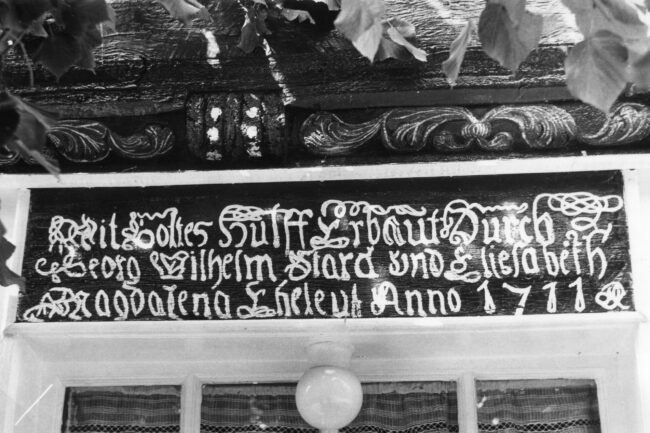 Mit Gottes Hülff Erbaut Durch
Georg Wilhelm Stard und Eliesabeth
Magdalena Eheleut Anno 1711